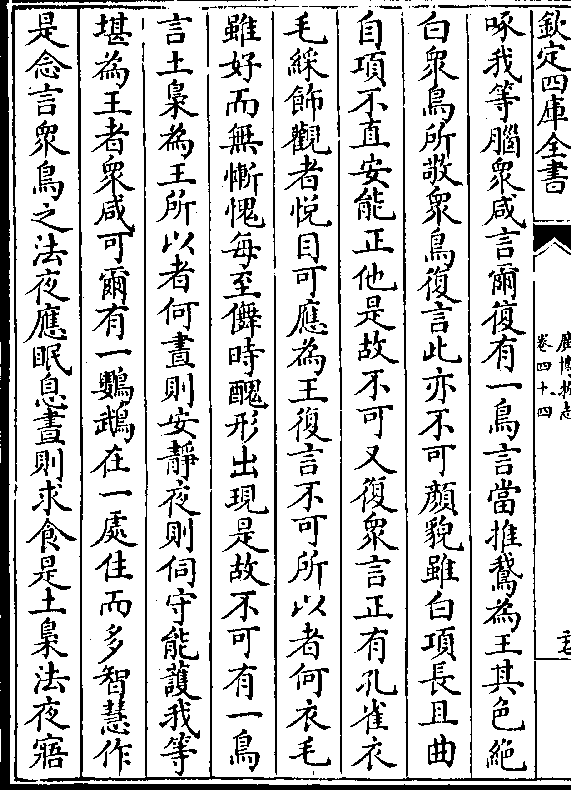 欽定四庫全書
廣博物志
卷四十四
啄我等腦衆咸言爾復有一鳥言當推鵞為王其色絶
白衆鳥所敬衆鳥復言此亦不可顔貌雖白項長且曲
自項不直安能正他是故不可又復衆言正有孔雀衣
毛綵飾觀者悦目可應為王復言不可所以者何衣毛
雖好而無慚愧每至儛時醜形出現是故不可有一鳥
言土梟為王所以者何晝則安靜夜則伺守能護我等
堪為王者衆咸可爾有一鸚鵡在一處住而多智慧作
是念言衆鳥之法夜應眠息晝則求食是土梟法夜寤